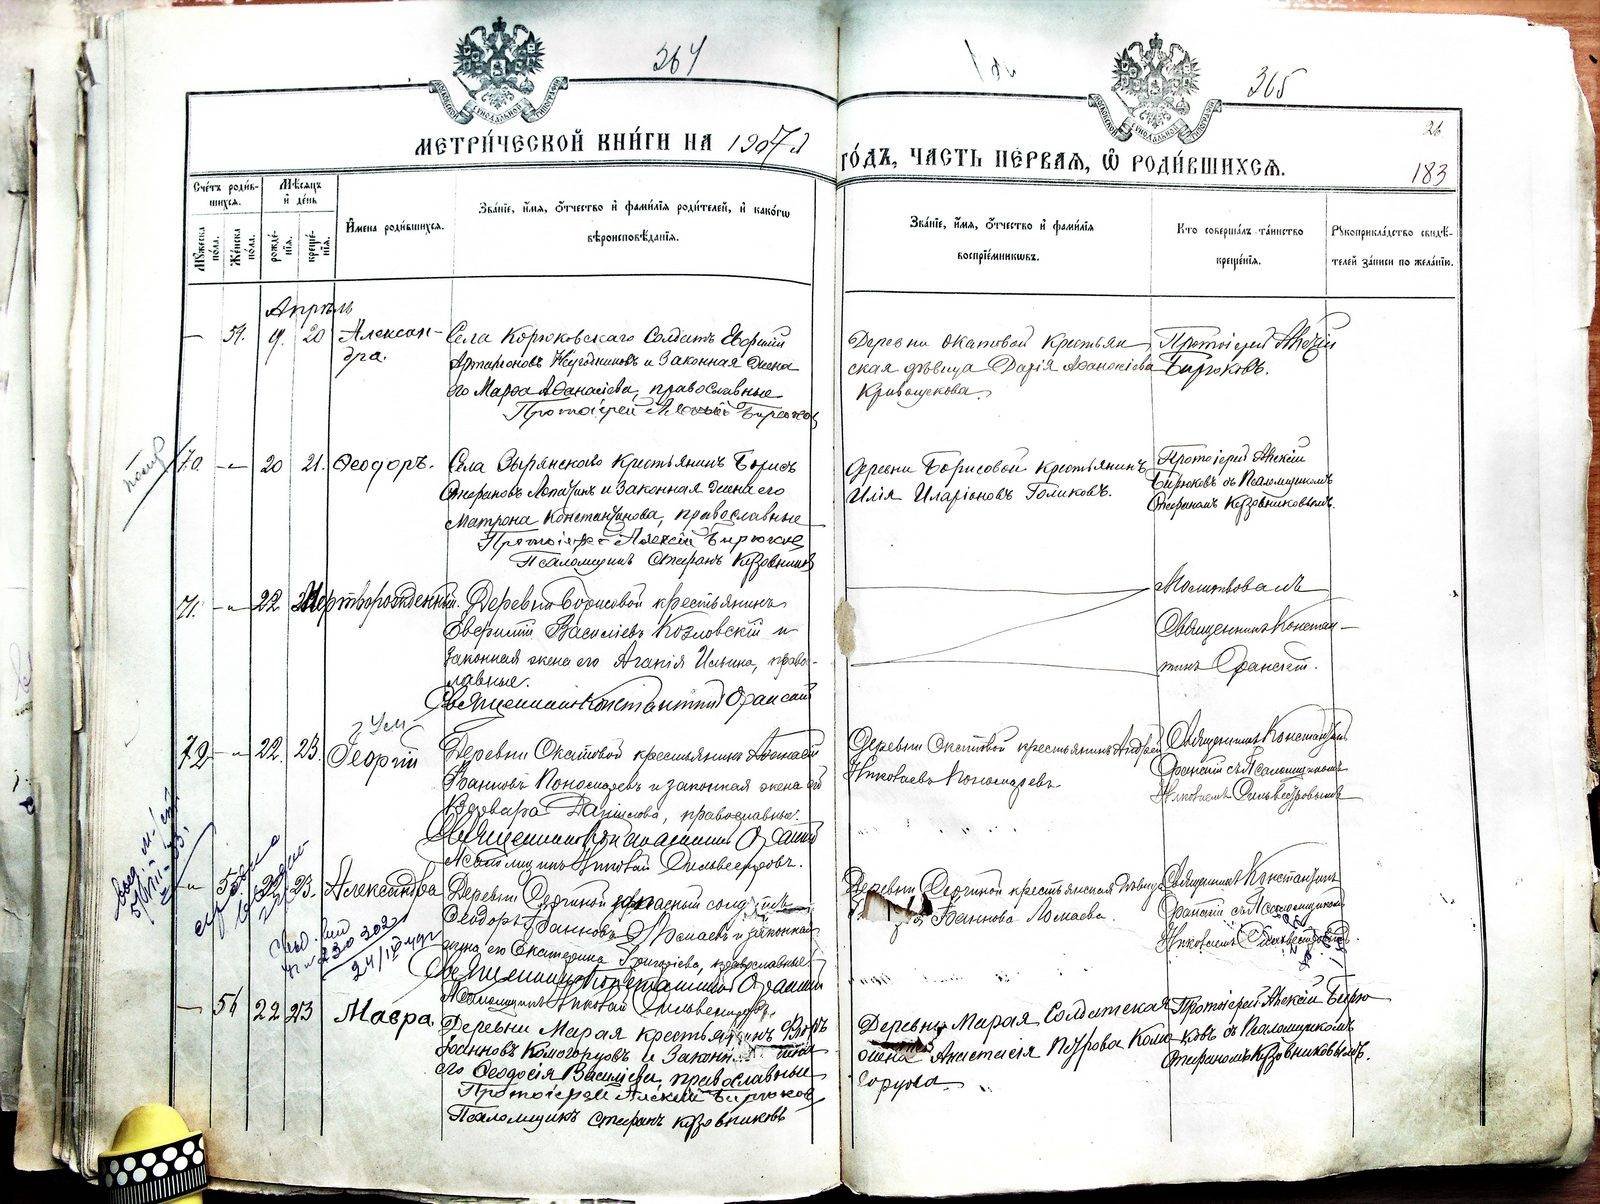 364
365
26
183
МЕТРИ́ЧЕСКОЙ КНИ́ГИ НА 1907 й
ГО́ДЪ, ЧАСТЬ ПЕ́РВАЯ, Ѿ РОДИ́ВШИХСЯ.
Сче́тъ роди́в-
шихся.
Му́жеска по́ла.
Же́нска по́ла.
Мѣ́сяцъ и҆ де́нь
рожде́-нїя.
креще́-нїя.
И҆мена роди́вшихся.
Зва́нїе, и҆́мя, ѻ҆́тчество и҆ фами́лїя роди́телей, и҆ како́гѡ
вѣроисповѣ́данїя.
Зва́нїе, и҆́мя, ѻ҆́тчество и҆ фами́лїя
воспрїе́мникѡвъ.
Кто̀ соверша́лъ та́инство
креще́нїя.
Рꙋкоприкла́дство свидѣ́-
телей за́писи по жела́нїю.
Апрѣль
— 54. 19. 20 Алексан-
дра.
Села Корюковскаго Солдатъ
и законная жена
его Марѳа Аѳанасіева, православные
Протоіерей Алексій Бирюков
Деревни Окатовой крестьян
ская дѣвица Дарія Аѳанасіева
Кривощекова.
Протоіерей Алексій
Бирюковъ.
70. —„— 20 21. Ѳеодоръ.
Села Зырянского крестьянинъ Борисъ
Стефановъ Лопатинъ и законная жена его
Матрона Константинова, православные
Протоіерей Алексій Бирюков
Псаломщикъ Стефанъ Кузовников
Деревни Борисовой крестьянинъ
Илія Иларіоновъ Голиковъ.
Протоіерей Алексій
Бирюковъ съ Псаломщикомъ
Стефаномъ Кузовниковымъ.
71. —„— 22 Мертворожденный.
Деревни Борисовой крестьянинъ
Евфимій Василіевъ Козловскій и
законная жена его Агапія Ильина, право-
славные.
Священникъ Константинъ
Молитвовалъ
Священникъ Констан-
тинъ
72 —„— 22. 23. Георгій
ум
Деревни Окатовой крестьянинъ
Іоанновъ Пономаревъ и законная жена его
Варвара Даніилова, православные.
Священникъ Константинъ
Псаломщикъ Николай Сильвестровъ.
Деревни Окатовой крестьянинъ Андрей
Николаевъ Пономаревъ
Священникъ Константинъ
съ Псаломщикомъ
Николаемъ Сильвестровымъ
—„— 22 23. Александра
Деревни запасный
Ѳеодоръ Іоанновъ Ломаевъ и законная
жена его Екатерина Григоріева, православные
Священникъ Константинъ
Псаломщикъ Николай Сильвестровъ.
Деревни крестьянская дѣвица
Іоаннова Ломаева.
Священникъ Константинъ
съ Псаломщикомъ
Николаемъ Сильвестровымъ.
230302
— 56 22 23 Мавра.
Деревни Марая крестьянинъ
Іоанновъ Комогорцовъ и законная жена
его Ѳеодосія Василіева, православные
Протоіерей Алексій Бирюков
Псаломщикъ Стефанъ Кузовниковъ
Деревни Марая Солдатская
жена Анастасія Петрова Комо
горцова.
Протоіерей Алексій Бирю
ковъ съ Псаломщикомъ
Стефаномъ Кузовниковымъ.